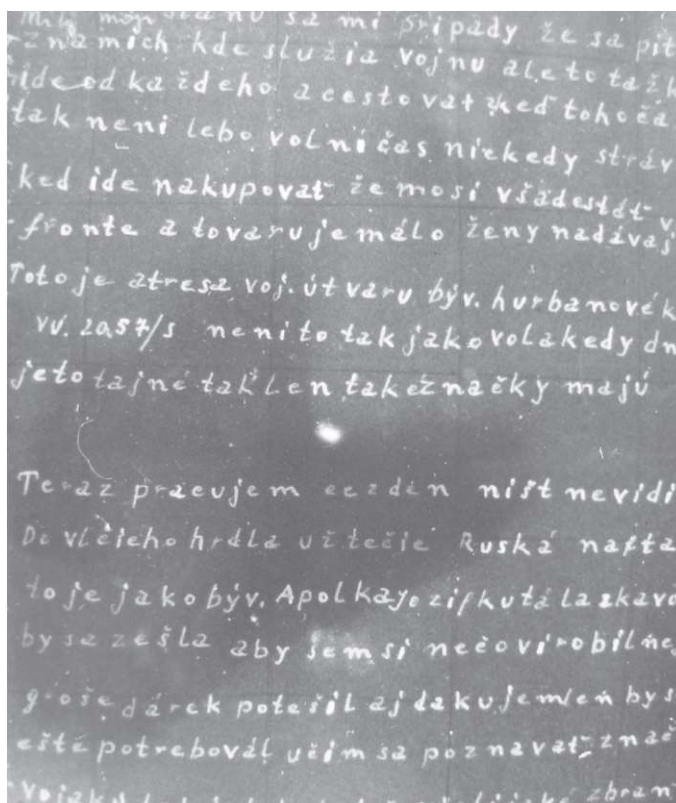 Milý môj sa mi prípady že sa pit
známich kde služia vojnu ale to tažk
ide od každeho a cestovat keď toho ča
tak neni lebo volni čas niekedy stráv
ked ide nakupovať že mosi všade stát v
fronte a tovaru je málo ženy nadávaj
Toto je atresa voj. útvaru býv. hurbanovék
VÚ. 2057/s neni to tak jako volakedy dn
je to tajné tak len také značky majú
Teraz pracujem cez deň ništ nevidi
Do vlčieho hrdla už tečie Ruská nafta
to je jako býv. Apolka
by sa zešla aby sem si nečo virobil ne
groše dárek potešil aj dakujem len by s
ešté potreboval učim sa poznavat znač
zbran